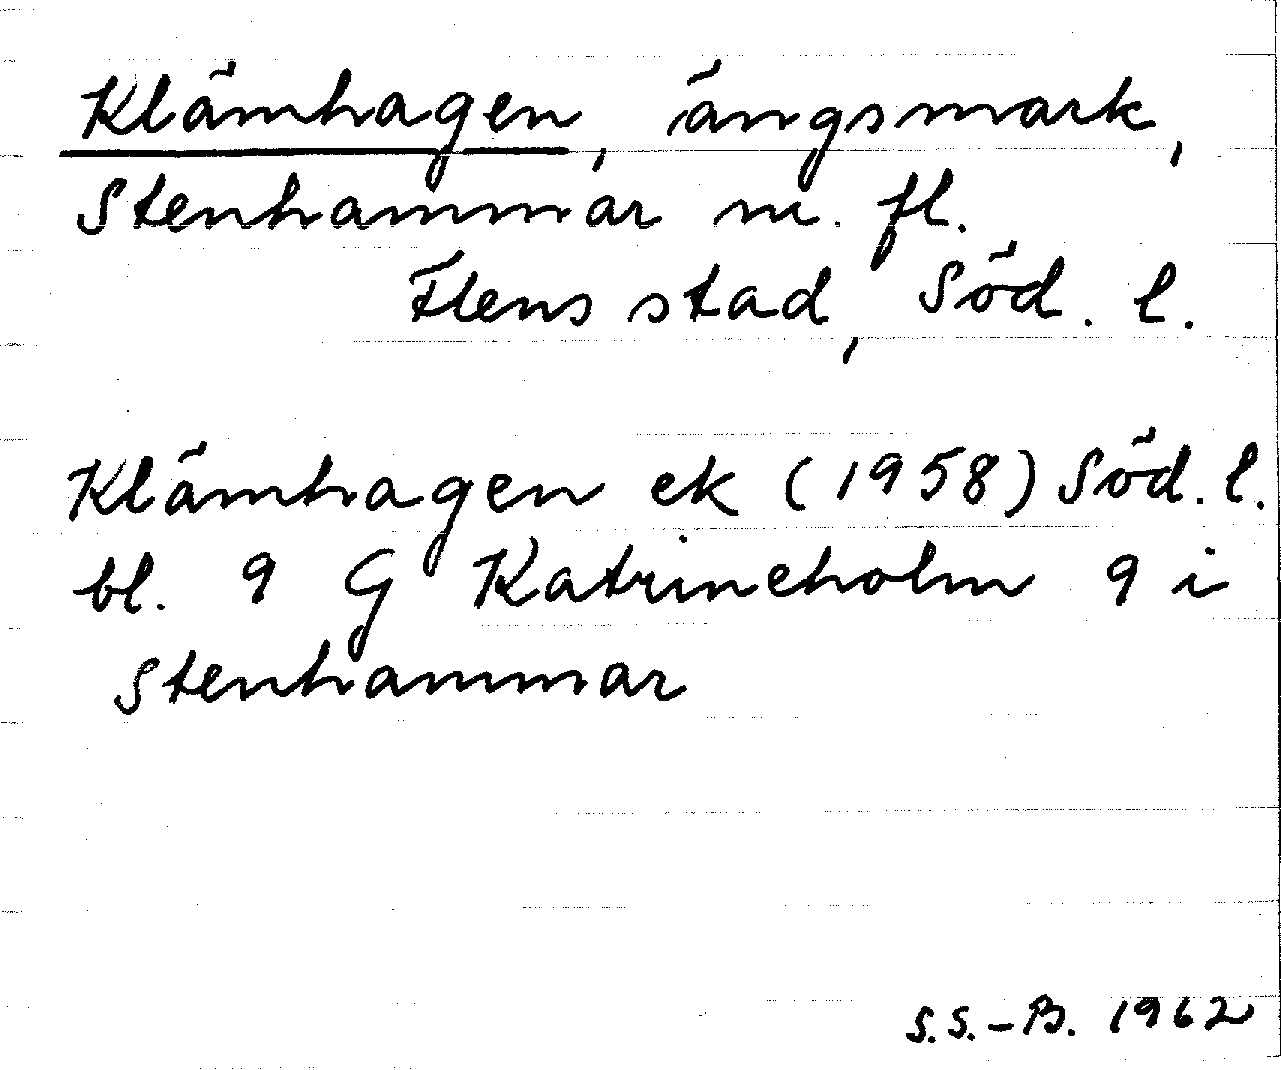 Klämhagen, ängsmark,
Stenhammar m. fl.
Flens stad, Söd. l.
Klämhagen ek (1958) Söd. l.
bl. 9 G Katrineholm 9 i
Stenhammar
S.S.-B. 1962